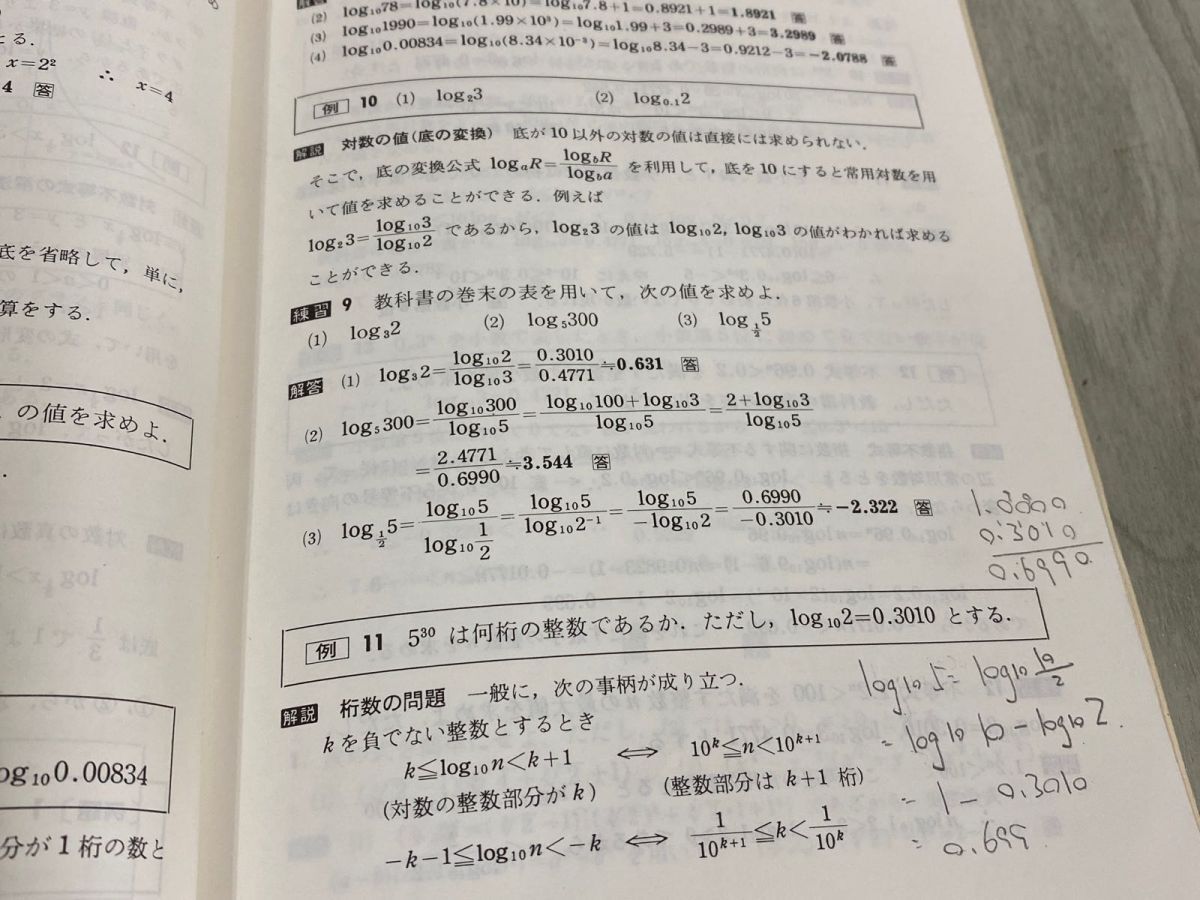 とる.
x=2² ∴ x=4
4 答
底を省略して，単に,
算をする.
の値を求めよ.
og₁₀0.00834
分が1桁の数と
(2) log₁₀78=log₁₀(7.8×10)=log₁₀7.8+1=0.8921+1=1.8921 答
(3) log₁₀1990=log₁₀(1.99×10³)=log₁₀1.99+3=0.2989+3=3.2989 答
(4) log₁₀0.00834=log₁₀(8.34×10⁻³)=log₁₀8.34−3=0.9212−3=−2.0788 答
例 10 (1) log₂3 (2) log₀.₁2
解説 対数の値(底の変換) 底が10以外の対数の値は直接には求められない.
そこで，底の変換公式 logₐR=log_bR/log_ba を利用して，底を10にすると常用対数を用
いて値を求めることができる. 例えば
log₂3=log₁₀3/log₁₀2 であるから，log₂3 の値は log₁₀2, log₁₀3 の値がわかれば求める
ことができる.
練習 9 教科書の巻末の表を用いて，次の値を求めよ.
(1) log₃2 (2) log₅300 (3) log_{1/2}5
解答 (1) log₃2=log₁₀2/log₁₀3=0.3010/0.4771≒0.631 答
(2) log₅300=log₁₀300/log₁₀5=(log₁₀100+log₁₀3)/log₁₀5=(2+log₁₀3)/log₁₀5
=2.4771/0.6990≒3.544 答
(3) log_{1/2}5=log₁₀5/log₁₀(1/2)=log₁₀5/log₁₀2⁻¹=log₁₀5/−log₁₀2=0.6990/−0.3010≒−2.322 答
0.3010
0.6990
例 11 5³⁰ は何桁の整数であるか. ただし，log₁₀2=0.3010 とする.
解説 桁数の問題 一般に，次の事柄が成り立つ.
kを負でない整数とするとき
k≦log₁₀n<k+1 ⟺ 10ᵏ≦n<10ᵏ⁺¹
(対数の整数部分がk) (整数部分は k+1 桁)
−k−1≦log₁₀n<−k ⟺ 1/10ᵏ⁺¹≦k<1/10ᵏ
log₁₀5=log₁₀10/2
=log₁₀10−log₁₀2.
=1−0.3010
=0.699